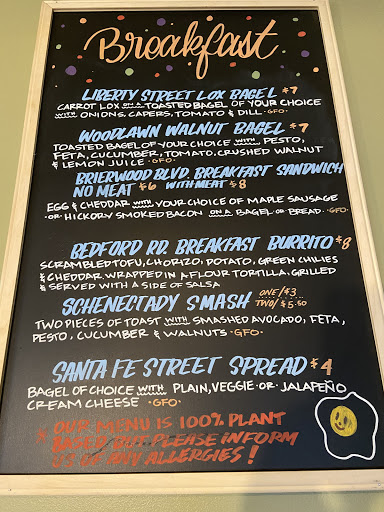 Breakfast
LIBERTY STREET LOX BAGEL $7
CARROT LOX ON A TOASTED BAGEL OF YOUR CHOICE
WITH ONIONS, CAPERS, TOMATO & DILL · GFO ·
WOODLAWN WALNUT BAGEL $7
TOASTED BAGEL OF YOUR CHOICE WITH PESTO,
FETA, CUCUMBER, TOMATO, CRUSHED WALNUT
& LEMON JUICE · GFO ·
BRIERWOOD BLVD. BREAKFAST SANDWICH
NO MEAT $6 WITH MEAT $8
EGG & CHEDDAR WITH YOUR CHOICE OF MAPLE SAUSAGE
· OR · HICKORY SMOKED BACON ON A BAGEL OR BREAD · GFO ·
BEDFORD RD. BREAKFAST BURRITO $8
SCRAMBLED TOFU, CHORIZO, POTATO, GREEN CHILIES
& CHEDDAR WRAPPED IN A FLOUR TORTILLA, GRILLED
& SERVED WITH A SIDE OF SALSA
SCHENECTADY SMASH ONE/$3
TWO/$5.50
TWO PIECES OF TOAST WITH SMASHED AVOCADO, FETA,
PESTO, CUCUMBER & WALNUTS · GFO ·
SANTA FE STREET SPREAD $4
BAGEL OF CHOICE WITH PLAIN, VEGGIE · OR · JALAPEÑO
CREAM CHEESE · GFO ·
* OUR MENU IS 100% PLANT
BASED BUT PLEASE INFORM
US OF ANY ALLERGIES!